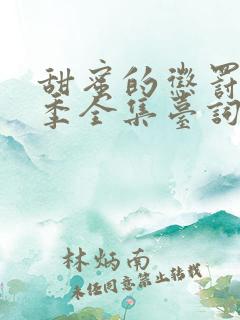 甜蜜的懲罰
季全集臺詞
林炳南
未經同意禁止轉載